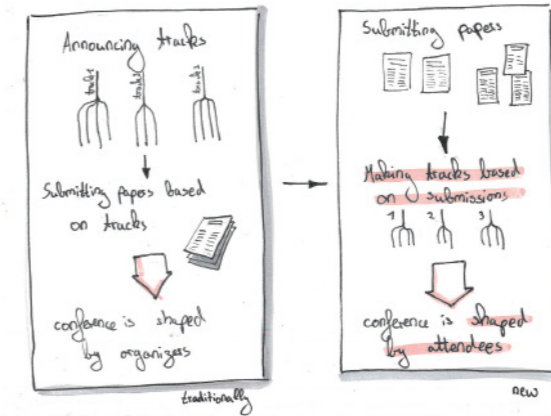 Announcing tracks
track1
track2
track3
Submitting papers based
on tracks
conference is shaped
by organizers
traditionally
Submitting papers
Making tracks based
on submissions
1 2 3
conference is shaped
by attendees
new